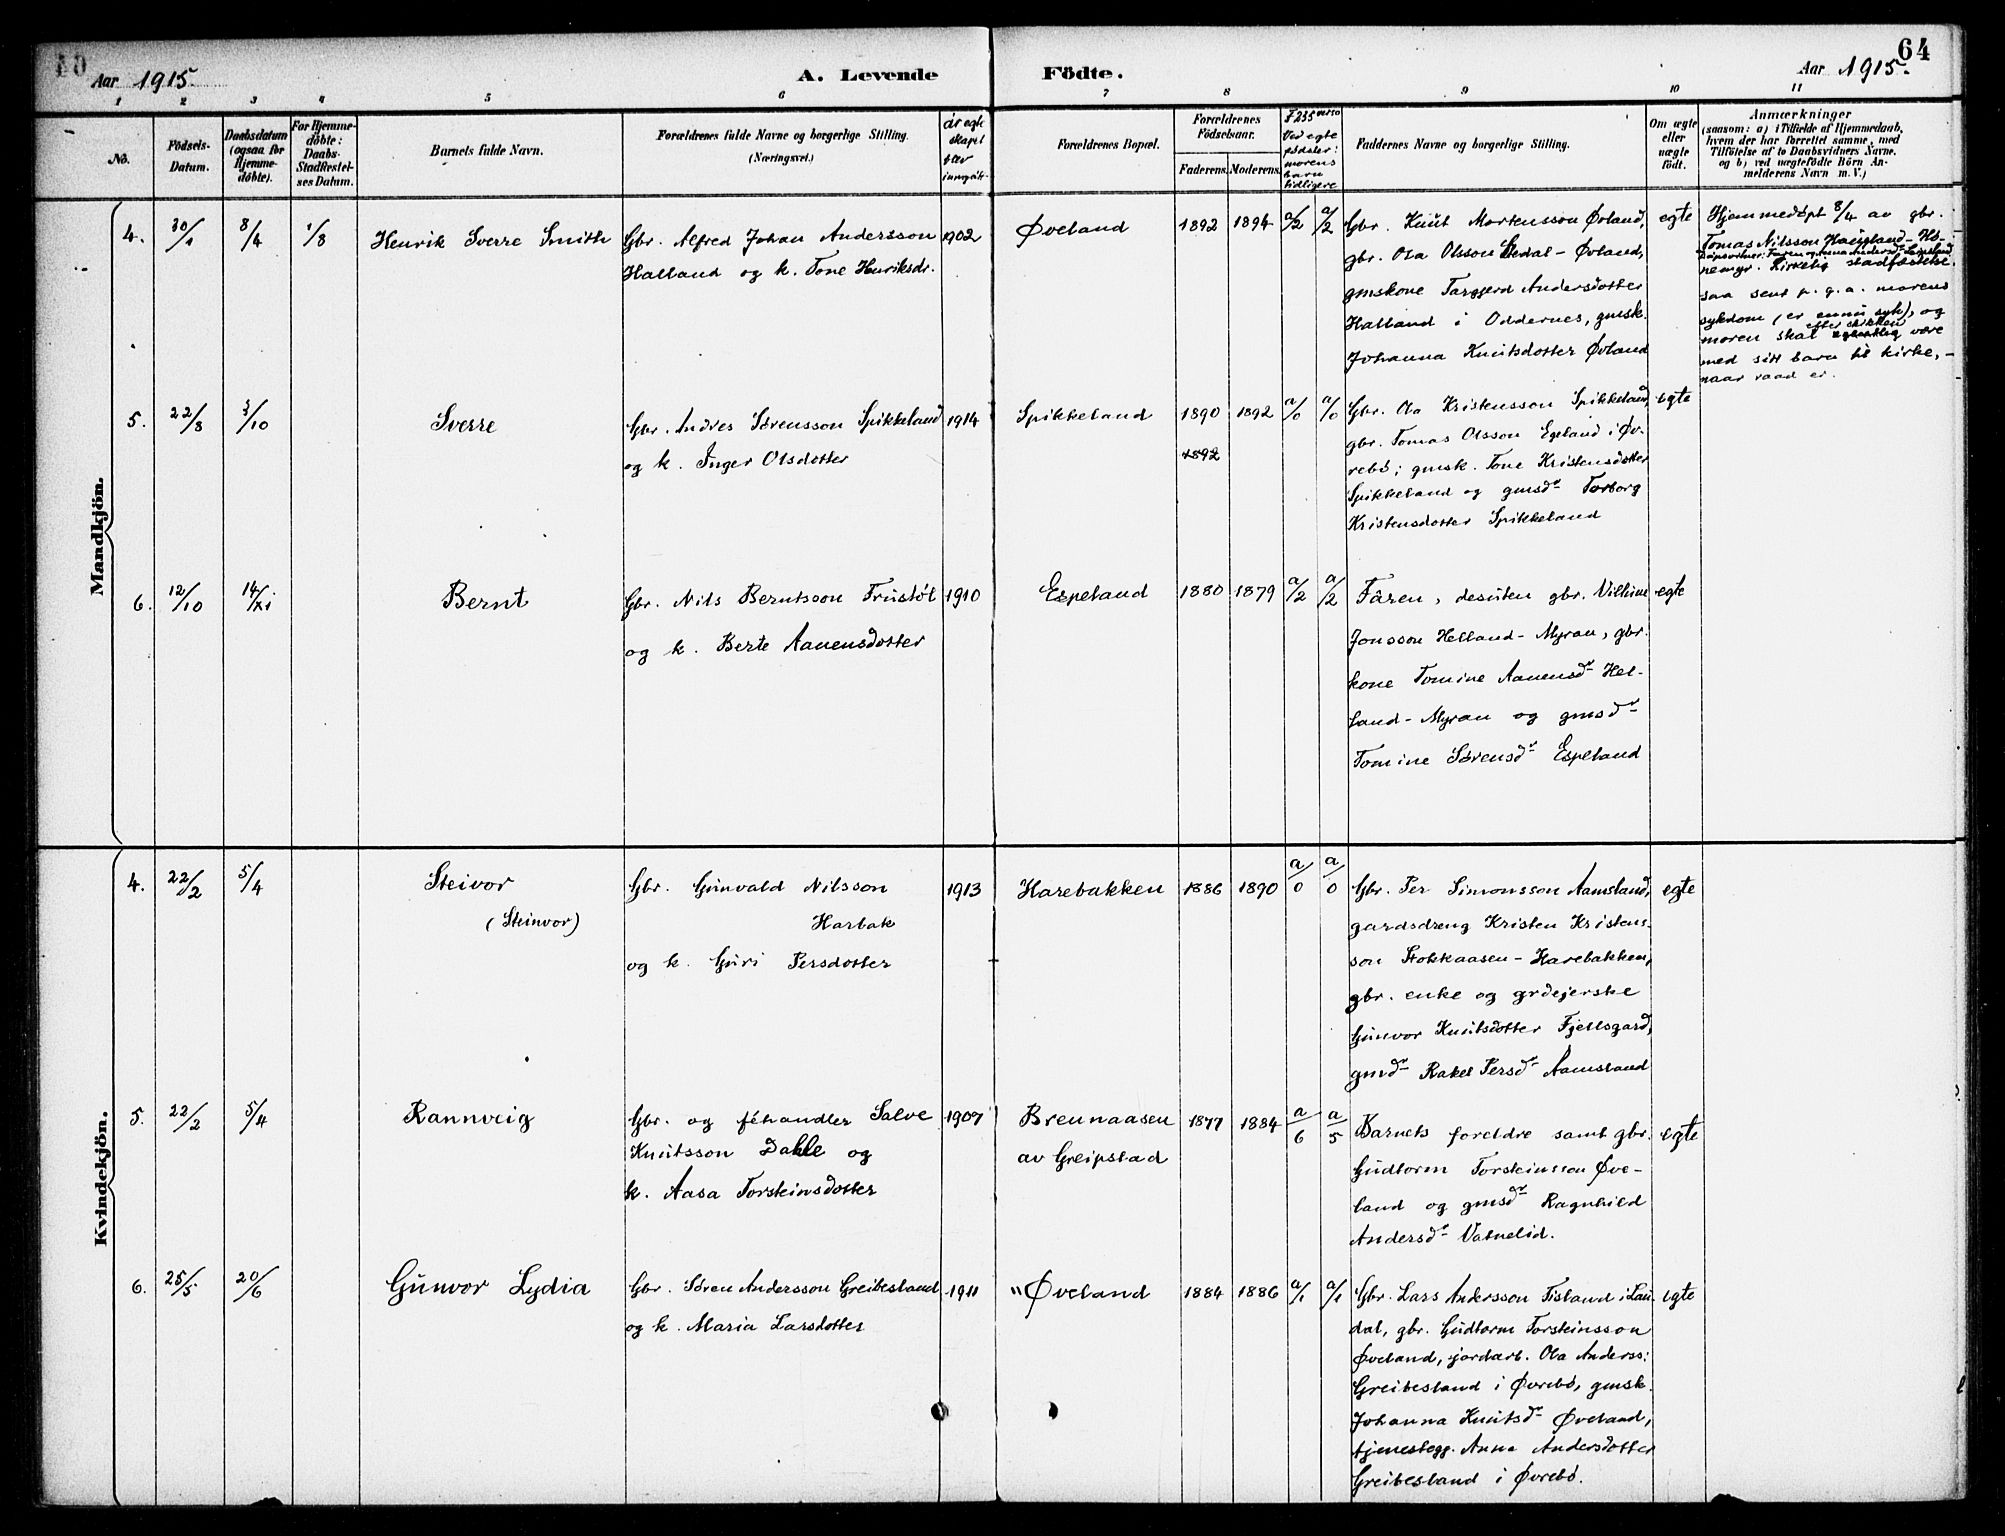 Aar 1915. A. Levende Födte. Aar 1915. 64
1 2 3 4 5 6 7 8 9 10 11
No. Födsels-Datum. Daabsdatum (ogsaa for Hjemme-döbte). For Hjemme-döbte: Daabs-Stadfæstel-ses Datum. Barnets fulde Navn. Forældrenes fulde Navne og borgerlige Stilling. (Næringsvei.) År egte skapet blev inngått. Forældrenes Bopæl. Forældrenes Födselsaar. Faderens. Moderens. Ved egte fødsler: morens barn tidligere Faddernes Navne og borgerlige Stilling. Om ægte eller uægte födt. Anmærkninger (saasom: a) i Tilfælde af Hjemmedaab, hvem der har forrettet samme, med Tilföielse af to Daabsvidners Navne, og b) ved uægtefödte Börn Anmelderens Navn m. V.)
Mandkjön.
4. 30/1 8/4 1/8 Henrik Sverre Smith
Gbr. Alfred Johan Andersson 1902
Halland og k. Tone Henriksdr.
Øveland 1892 1894 a/2 a/2
Gbr. Knut Mortensson Øvland, egte
gbr. Ola Olsson Stedal - Øvland,
gmskone Targjerd Andersdotter
Halland i Oddernes, gmsk.
Johanna Knutsdotter Øvland
Hjemmedøpt 8/4 av gbr.
Tomas Nilsson Haugland - Hø-
nemyr. Kirkelig stadfæstelse
saa sent p. g. a. morens
sykdom (er ennu syk), og
moren skal efter skikken være
med sitt barn til kirke, -
naar raad er.
5. 22/8 3/10 Sverre
Gbr. Andres Sørensson Spikkeland 1914
og k. Inger Olsdotter
Spikkeland 1890 1892 a/0 a/0
1892
Gbr. Ola Kristensson Spikkeland, egte
gbr. Tomas Olsson Egeland i Øv-
rebø; gmsk. Tone Kristensdotter
Spikkeland og gmsdr Torborg
Kristensdotter Spikkeland
6. 12/10 14/XI Bernt
Gbr. Nils Berntsson Frustøl 1910
og k. Berte Aanensdotter
Espeland 1880 1879 a/2 a/2
Fåren, desuten gbr. Vilhine egte
Jonsson Helland - Myran, gbr.
kone Tomine Aanensdr Hel-
land - Myran og gmsdr
Tomine Sørensdr Espeland
Kvindekjön.
4. 22/2 5/4 Steivor
(Steinvor)
Gbr. Gunvald Nilsson 1913
Harbak
og k. Guri Persdotter
Harebakken 1886 1890 a/0 a/0
Gbr. Per Simonsson Aamsland, egte
gardsdreng Kristen Kristens-
son Stokkaasen - Harebakken,
gbr. enke og grdejerske
Gunvor Knutsdotter Fjellsgard,
gmdr Rakel Persdr Aamsland
5. 22/2 5/4 Rannveig
Gbr. og féhandler Salve 1907
Knutsson Dahle og
k. Aasa Torsteinsdotter
Brennaasen 1877 1884 a/6 a/5
av Greipstad
Barnets foreldre samt gbr. egte
Gudtorm Torsteinsson Øve-
land og gmsdr Ragnhild
Andersdr Vatnelid.
6. 25/5 20/6 Gunvor Lydia
Gbr. Søren Andersson Greibesland 1911
og k. Maria Larsdotter
Øveland 1884 1886 a/1 a/1
Gbr. Lars Andersson Tisland i Lau- egte
dal, gbr. Gudtorm Torsteinsson
Øveland, jordarb. Ola Anderss:
Greibesland i Øvrebø, gmsk.
Johanna Knutsdr Øveland,
tjenestegg. Anna Andersdotter
Greibesland i Øvrebø.